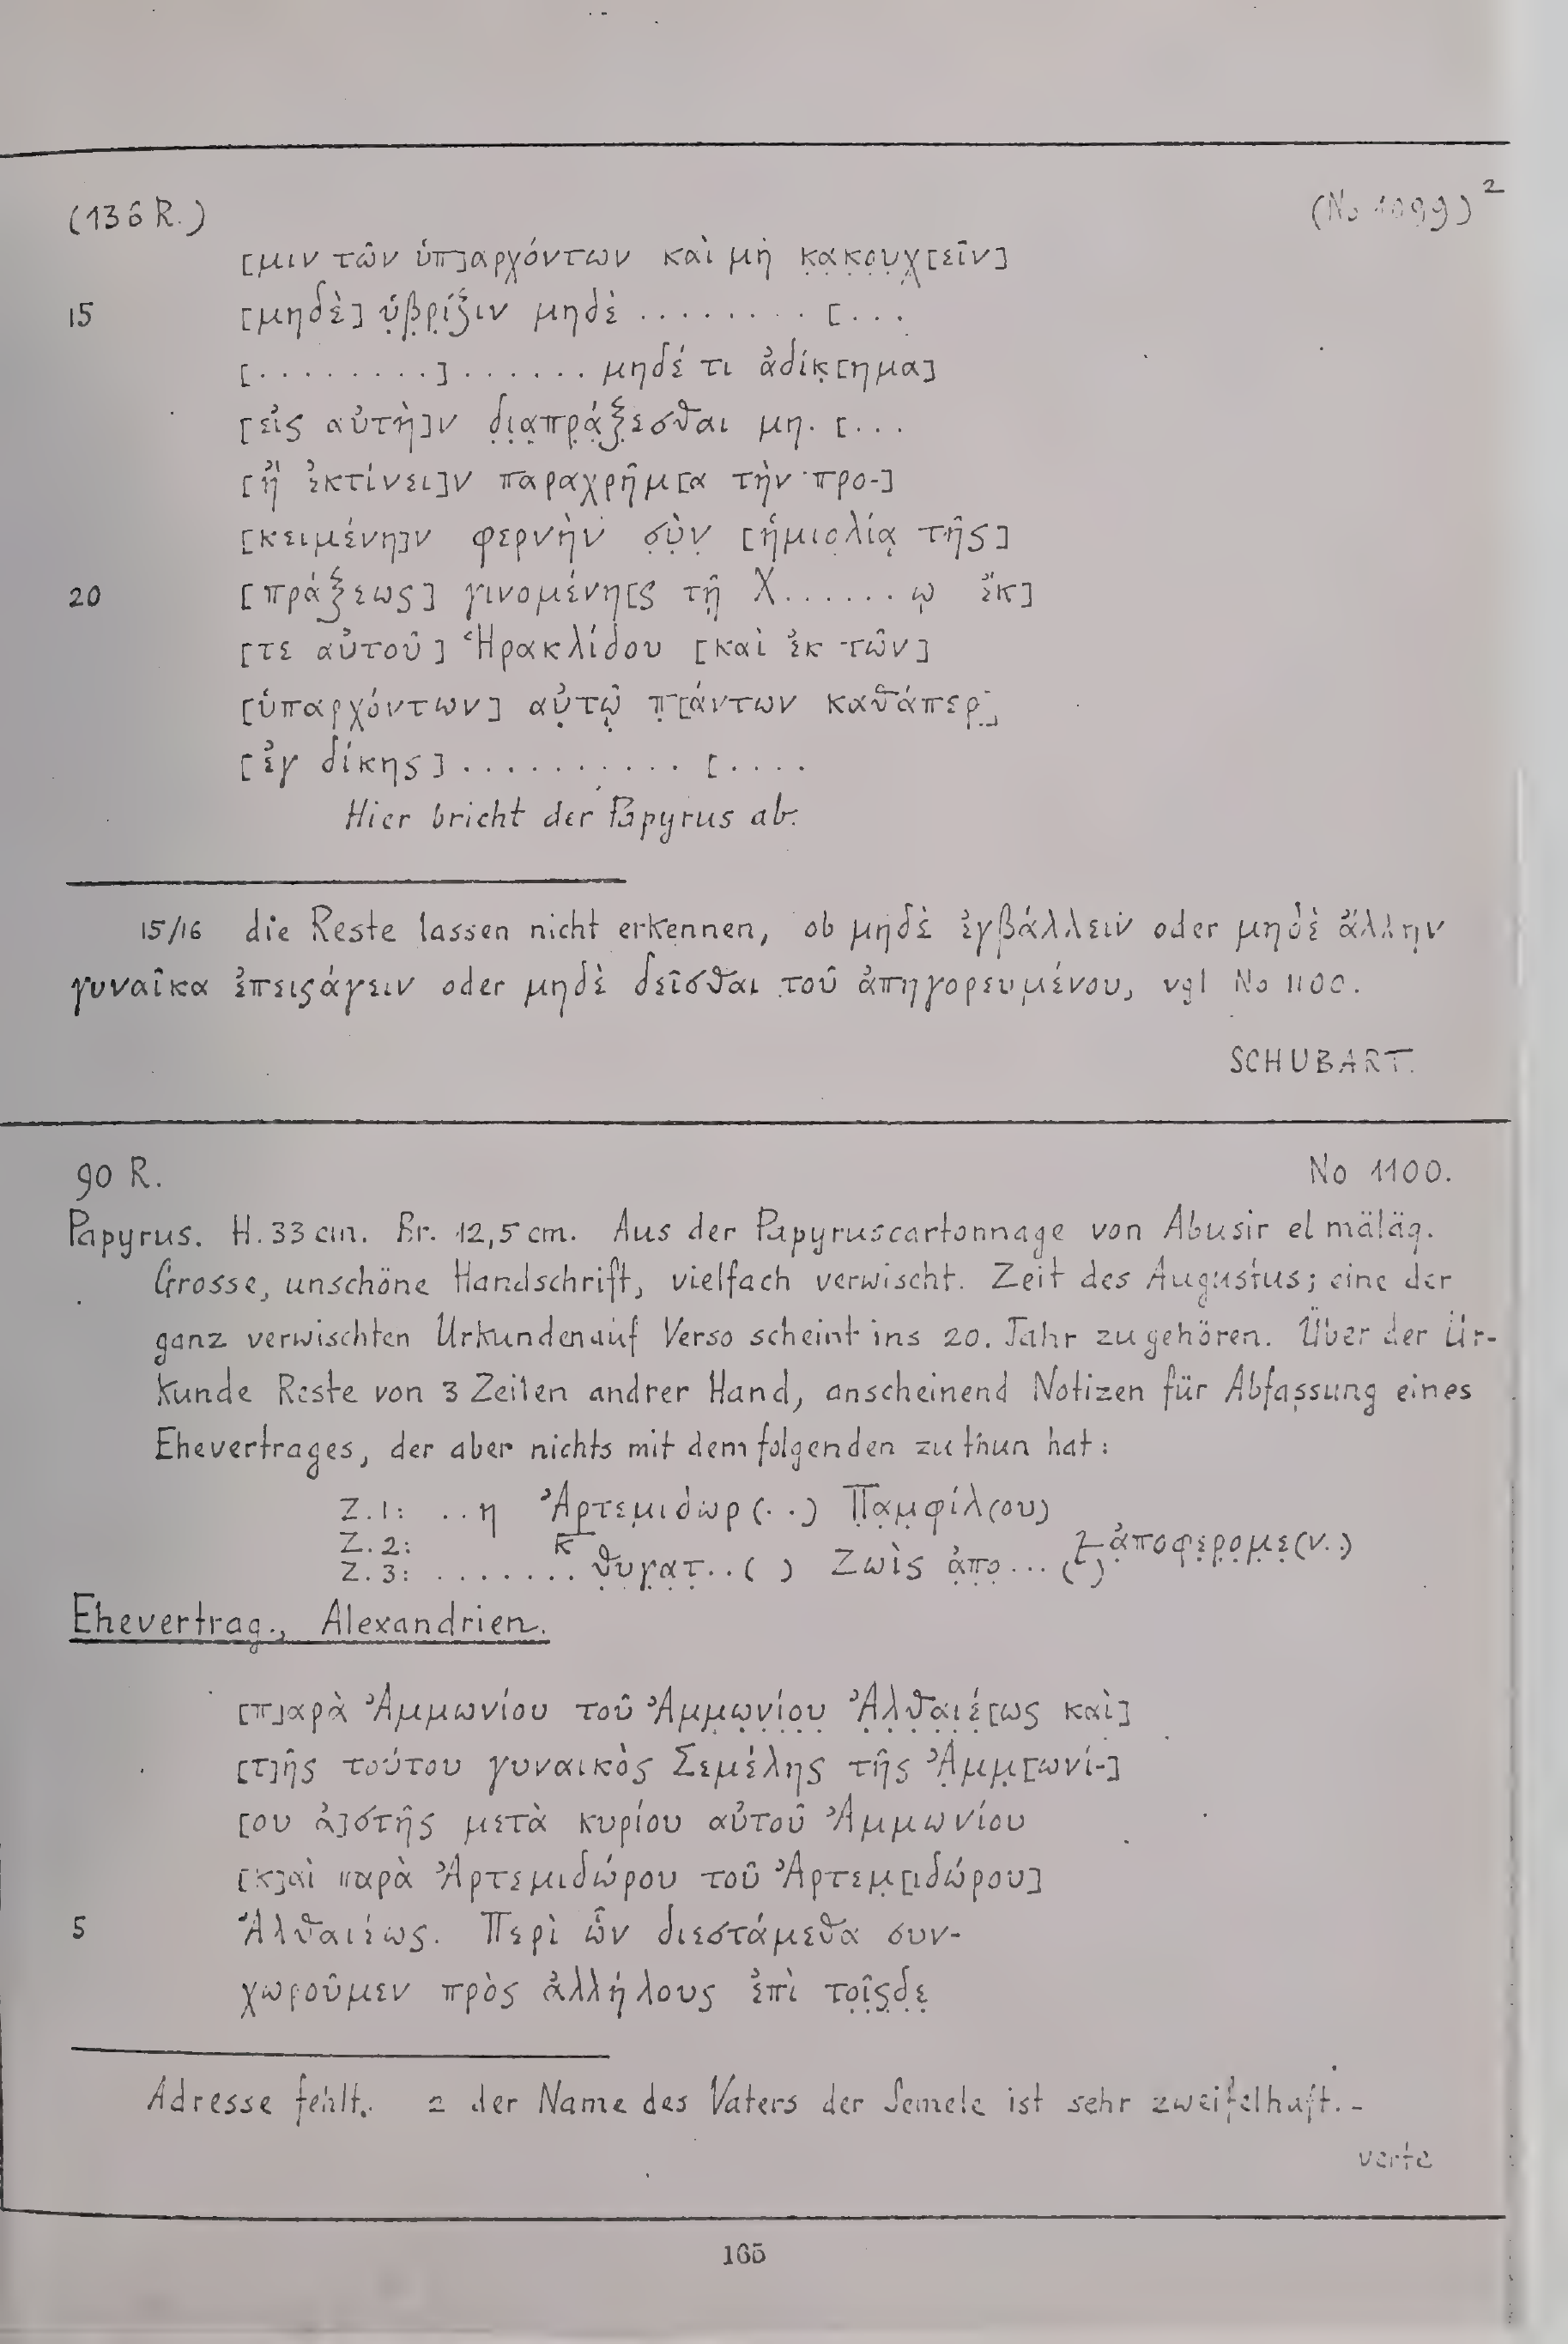 (136 R.) (No 1099) 2
[μιν τῶν ὑπ]αρχόντων καὶ μὴ κ̣α̣κ̣ο̣υ̣χ̣[εῖν]
15 [μηδὲ] ὑ̣β̣ρ̣ίζιν μηδὲ ........ [...
[........]...... μηδέ τι ἀδίκ̣[ημα]
[εἰς αὐτὴ]ν δ̣ι̣α̣π̣ρ̣ά̣ξ̣εσθαι μη. [...
[ἢ ἐκτίνει]ν παραχρῆμ[α τὴν προ-]
[κειμένη]ν φερνὴν σ̣ὺ̣ν̣ [ἡμιολίᾳ τῆς]
20 [πράξεως] γινομένη[ς τῇ Χ......ῳ ἔκ]
[τε αὐτοῦ] Ἡρακλίδου [καὶ ἐκ τῶν]
[ὑπαρχόντων] αὐ̣τῷ̣ π̣[άντων καθάπερ]
[ἐγ δίκης].......... [....
Hier bricht der Papyrus ab.
15/16 die Reste lassen nicht erkennen, ob μηδὲ ἐγβάλλειν oder μηδὲ ἄλλην
γυναῖκα ἐπειςάγειν oder μηδὲ δεῖσθαι τοῦ ἀπηγορευμένου, vgl No 1100.
SCHUBART.
90 R. No 1100.
Papyrus. H. 33 cm. Br. 12,5 cm. Aus der Papyruscartonnage von Abusir el mäläq.
Grosse, unschöne Handschrift, vielfach verwischt. Zeit des Augustus; eine der
ganz verwischten Urkunden auf Verso scheint ins 20. Jahr zu gehören. Über der Ur-
kunde Reste von 3 Zeilen andrer Hand, anscheinend Notizen für Abfassung eines
Ehevertrages, der aber nichts mit dem folgenden zu thun hat:
Z. 1: ..η Ἀρτεμιδωρ(..) Π̣α̣μ̣φίλ(ου)
Z. 2: κ̅
Z. 3: .......θ̣υ̣γ̣α̣τ̣..( ) Ζωὶς ἀ̣π̣ο̣... ( ) ἀ̣ποφ̣ε̣ρ̣ο̣μ̣ε̣(ν..)
Ehevertrag., Alexandrien.
[π]αρὰ Ἀμμωνίου τοῦ Ἀμμω̣ν̣ί̣ο̣υ̣ Ἀ̣λ̣θ̣α̣ι̣έ̣[ως καὶ]
[τ]ῆς τούτου γυναικὸς Σεμέλης τῆς Ἀ̣μ̣μ̣[ωνί-]
[ου ἀ]στῆς μετὰ κυρίου αὐτοῦ Ἀμμωνίου
[κ]αὶ παρὰ Ἀρτεμιδώρου τοῦ Ἀρτεμ̣[ιδώρου]
5 Ἀλθαιέως. Περὶ ὧν διεστάμεθα συν-
χωροῦμεν πρὸς ἀλλήλους ἐπὶ το̣ῖ̣ς̣δ̣ε̣
Adresse fehlt. 2 der Name des Vaters der Semele ist sehr zweifelhaft.-
verte
165